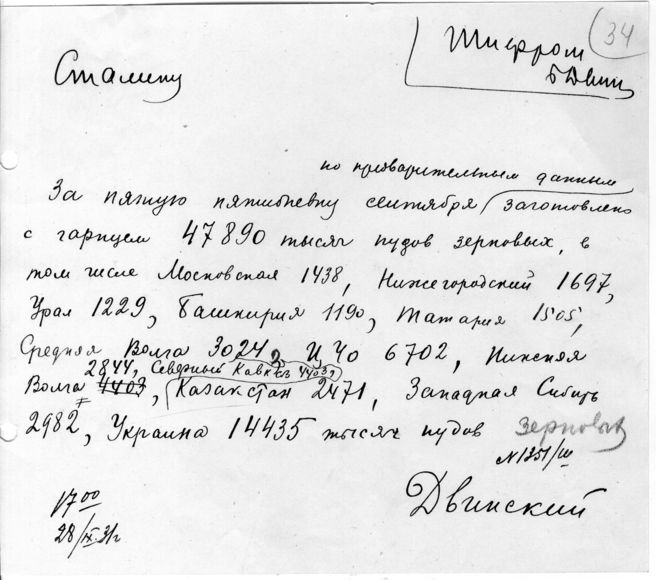 34
Шифром
Сталину
по предварительным данным
За пятую пятидневку сентября заготовлено
с гарнцем 47890 тысяч пудов зерновых, в
том числе Московская 1438, Нижегородский 1697,
Урал 1229, Башкирия 1190, Татария 1505,
Средняя Волга 3024, ЦЧО 6702, Нижняя
2844, Северный Кавказ 4403,
Волга 4403, Казахстан 2471, Западная Сибирь
2982, Украина 14435 тысяч пудов зерновых
Двинский
17 00
28/IX 31г